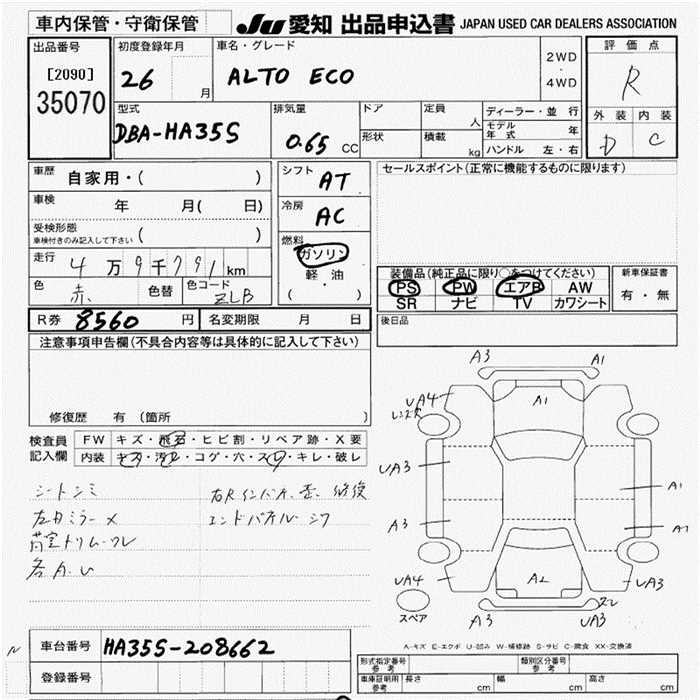 車内保管・守衛保管
JU 愛知 出品申込書 JAPAN USED CAR DEALERS ASSOCIATION
出品番号
[2090]
35070
初度登録年月
26 月
車名・グレード
ALTO ECO
2WD
・
4WD
評価点
R
外装 内装
D C
型式
DBA-HA35S
排気量
0.65 CC
ドア
形状
定員 人
積載 kg
ディーラー・並行
モデル年式 年
ハンドル 左・右
車歴 自家用・( )
車検 年 月( 日)
受検形態
車検付きのみ記入して下さい ( )
走行 4万9千791km
色 赤 色替
色コード ZLB
シフト AT
冷房 AC
燃料
ガソリン
軽・油
( ・ )
セールスポイント(正常に機能するものに限ります)
装備品(純正品に限り○をつけてください)
PS PW エアB AW
SR ナビ TV カワシート
新車保証書
有・無
後日品
R券 8560 円
名変期限 月 日
注意事項申告欄(不具合内容等は具体的に記入して下さい)
修復歴 有 (箇所
検査員
記入欄
FW キズ・飛石・ヒビ割・リペア跡・X要
内装 キズ・汚れ・コゲ・穴・スレ・キレ・破レ
シートシミ
左ミラーメ
荷室トリムワレ
各A.U
右Rインパネ、歪、修復
エンドパネルシワ
A3
A1
UA4
A1
UA3
A1
A3
A1
UA4
A2
UA3
スペア
A3
UA3
A-キズ E-エクボ U-凹み W-補修跡 S-サビ C-腐食 XX-交換済
車台番号 HA35S-208662
登録番号
型式指定番号
参考
類別区分番号
参考
車庫証明用
参考
長さ cm
幅 cm
高さ cm